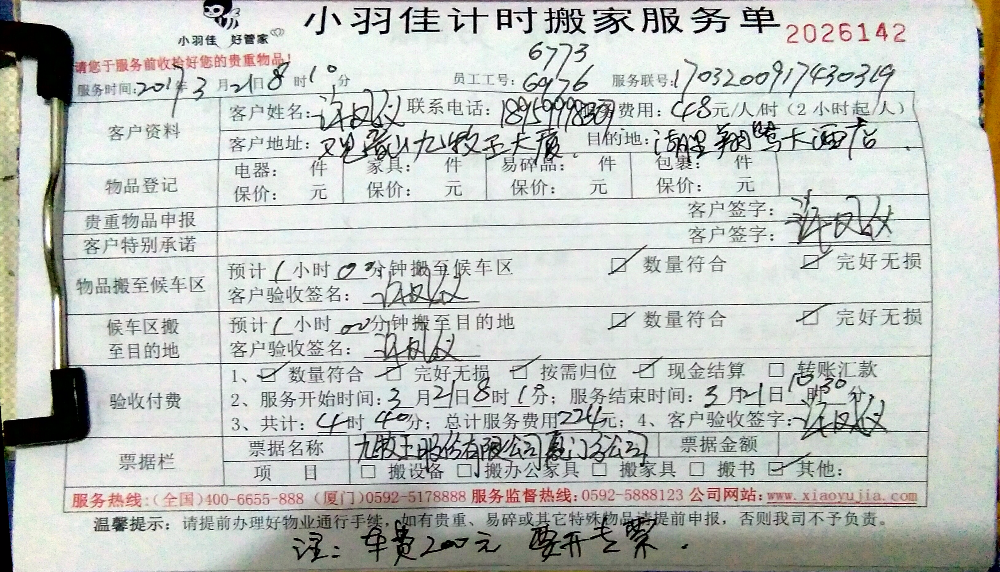 小羽佳计时搬家服务单
2026142
小羽佳 好管家
请您于服务前收拾好您的贵重物品!
6773
服务时间:2017年3月21日8时10分 员工工号:6976 服务联号:170320091743 0319
客户资料
客户姓名: 联系电话: 费用:48元/人/时(2小时起/人)
客户地址: 目的地:湖里翔鹭大酒店
物品登记
电器: 件 家具: 件 易碎品: 件 包裹: 件
保价: 元 保价: 元 保价: 元 保价: 元
贵重物品申报 客户签字:
客户特别承诺 客户签字:
物品搬至候车区
预计1小时00分钟搬至候车区 数量符合 完好无损
客户验收签名:
候车区搬至目的地
预计1小时00分钟搬至目的地 数量符合 完好无损
客户验收签名:
验收付费
1、数量符合 完好无损 按需归位 现金结算 转账汇款
2、服务开始时间:3月21日8时1分;服务结束时间:3月21日10时30分,
3、共计:4时40分;总计服务费用224元;4、客户验收签字:
票据栏
票据名称 九牧王股份有限公司厦门分公司 票据金额
项 目 搬设备 搬办公家具 搬家具 搬书 其他:
服务热线:(全国)400-6655-888 (厦门)0592-5178888 服务监督热线:0592-5888123 公司网站:www.xiaoyujia.com
温馨提示:请提前办理好物业通行手续,如有贵重、易碎或其它特殊物品请提前申报,否则我司不予负责。
注:车费200元 要开专票.